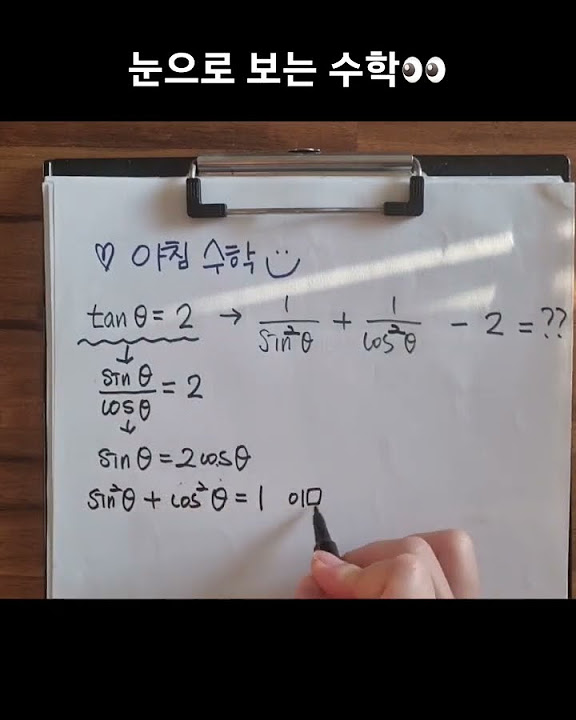 눈으로 보는 수학👀
♡ 아침 수학
tanθ = 2 → 1/sin²θ + 1/cos²θ - 2 = ??
↓
sinθ/cosθ = 2
↓
sinθ = 2cosθ
sin²θ + cos²θ = 1 이므